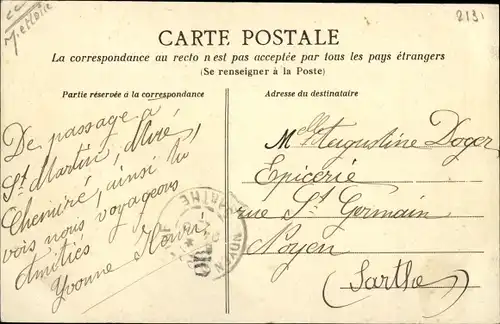 2131
CARTE POSTALE
La correspondance au recto n'est pas acceptée par tous les pays étrangers
(Se renseigner à la Poste)
Partie réservée à la correspondance
Adresse du destinataire
De passage à
St Martin, Miré,
Chemiré, ainsi tu
vois nous voyageons
Amitiés
Yvonne Henri
Melle Augustine Doger
Epicerie
rue St Germain
Noyen
(Sarthe)
NOYEN
SARTHE